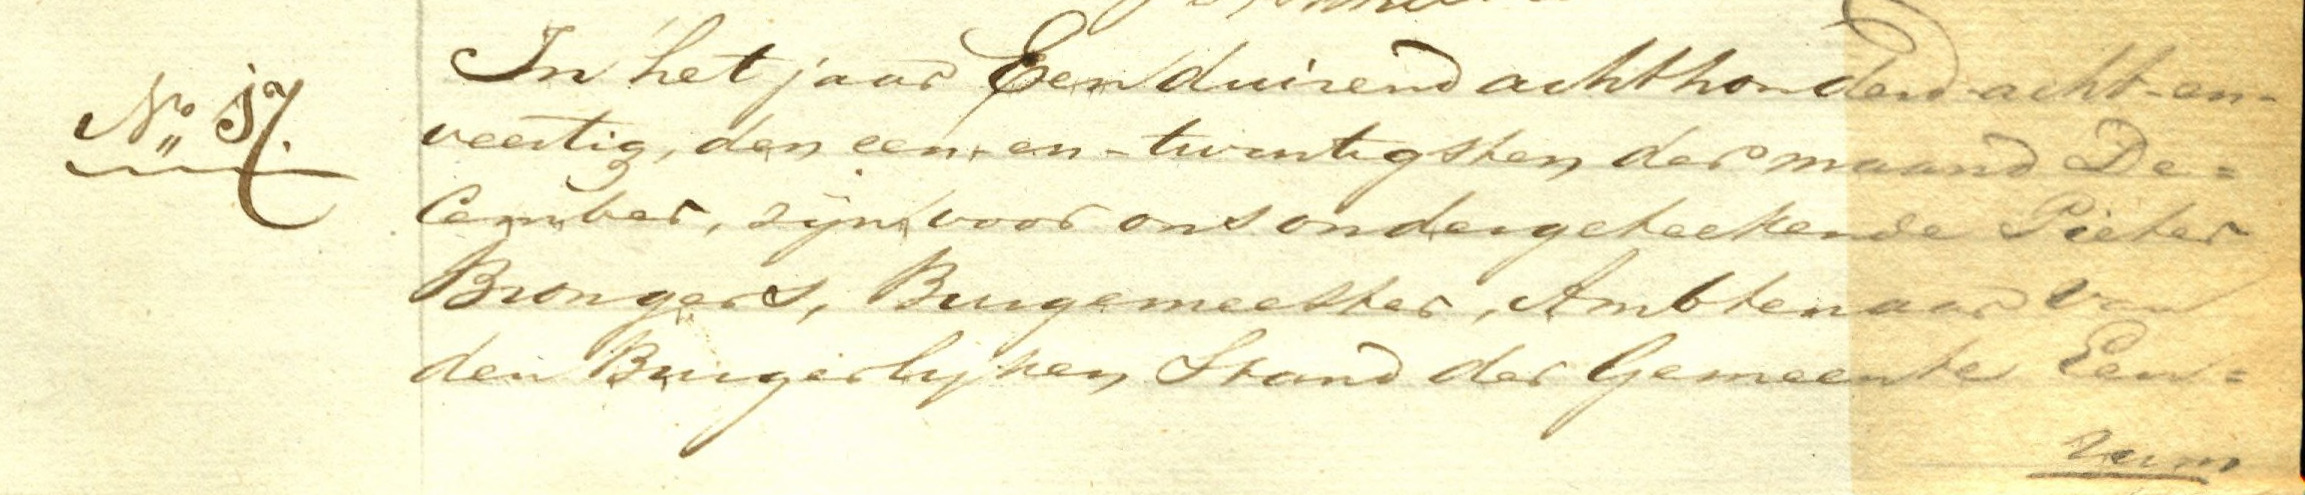 In het jaar Een duizend achthonderd acht-en-
No 37.
veertig, den een-en-twintigsten der maand De=
cember, zijn voor ons ondergeteekende Pieter
Brongers, Burgemeester, Ambtenaar van
den Burgerlijken Stand der Gemeente Een=
rum